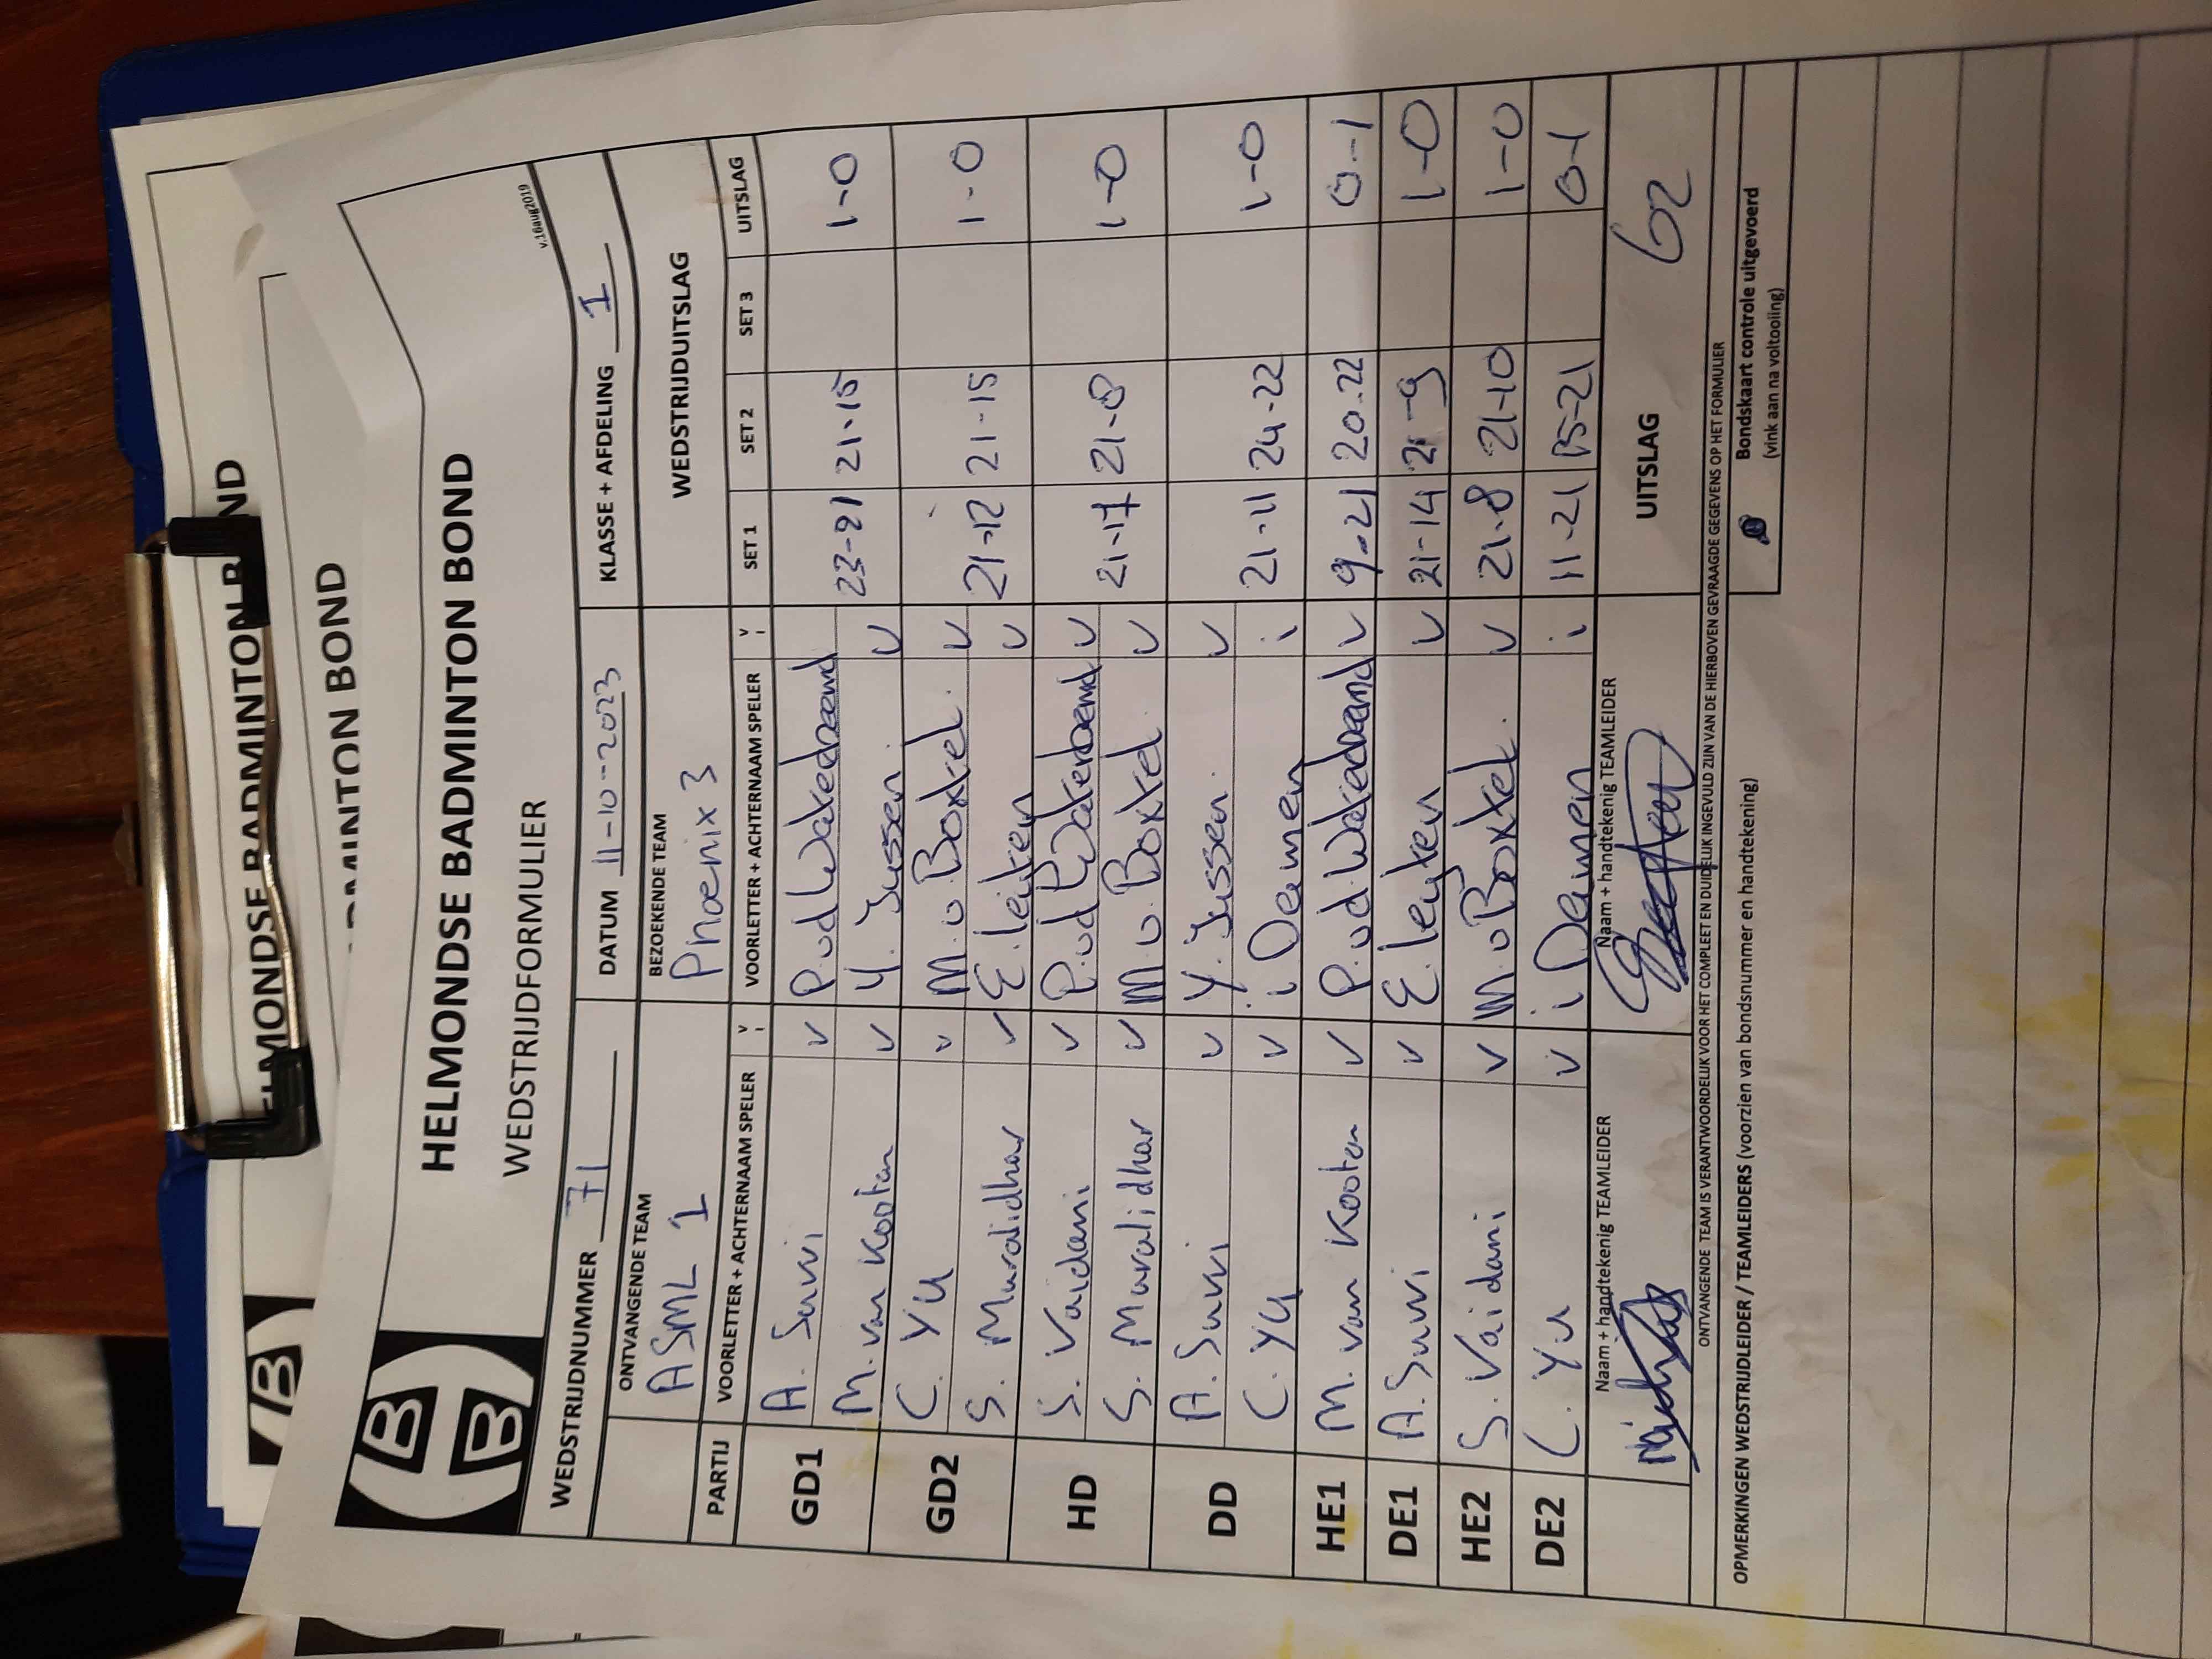 HELMONDSE BADMINTON BOND
WEDSTRIJDFORMULIER
v.16aug2019
WEDSTRIJDNUMMER 71 DATUM 11-10-2023 KLASSE + AFDELING 1
ONTVANGENDE TEAM BEZOEKENDE TEAM WEDSTRIJDUITSLAG
ASML 1 Phoenix 3
PARTIJ VOORLETTER + ACHTERNAAM SPELER V VOORLETTER + ACHTERNAAM SPELER V SET 1 SET 2 SET 3 UITSLAG
GD1 A. Survi v P.vd Wakerbeemd
M. van Kooten v Y. Jussen v 23-21 21-15 1-0
GD2 C. Yu v M.v Boxtel v
S. Muralidhar v E. leijten v 21-12 21-15 1-0
HD S. Vaidani v P.vd Wakerbeemd v
S. Muralidhar v M.v Boxtel v 21-17 21-8 1-0
DD A. Survi v Y. Jussen v
C. Yu v i Deimen i 21-11 24-22 1-0
HE1 M. van Kooten v P.vd Wakerbeemd v 9-21 20-22 0-1
DE1 A. Survi v E. leijten v 21-14 21-9 1-0
HE2 S. Vaidani v M.v Boxtel v 21-8 21-10 1-0
DE2 C. Yu v i Deimen i 11-21 15-21 0-1
Naam + handtekenig TEAMLEIDER Naam + handtekenig TEAMLEIDER UITSLAG 6-2
ONTVANGENDE TEAM IS VERANTWOORDELIJK VOOR HET COMPLEET EN DUIDELIJK INGEVULD ZIJN VAN DE HIERBOVEN GEVRAAGDE GEGEVENS OP HET FORMULIER
OPMERKINGEN WEDSTRIJDLEIDER / TEAMLEIDERS (voorzien van bondsnummer en handtekening)
Bondskaart controle uitgevoerd
(vink aan na voltooiing)